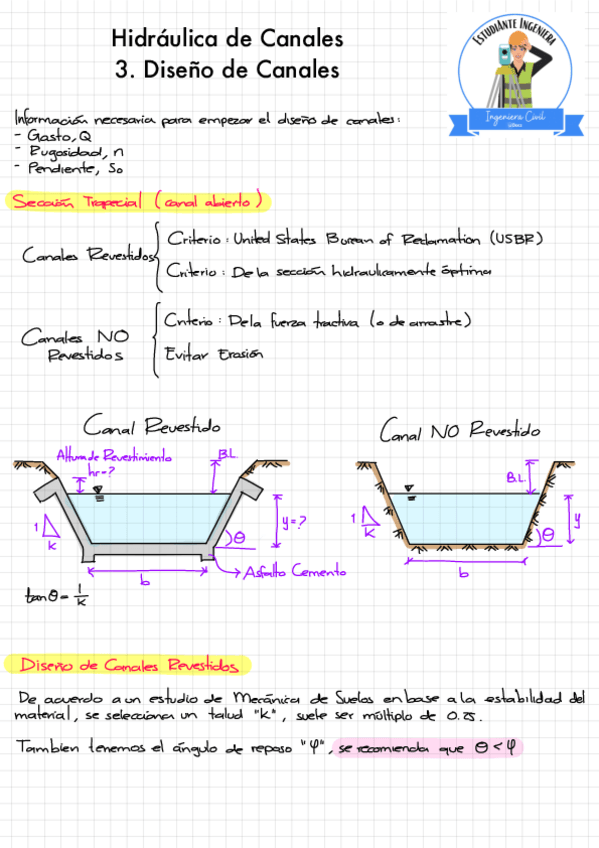 Hidráulica de Canales
3. Diseño de Canales
ESTUDIANTE INGENIERA
Ingeniera Civil
Información necesaria para empezar el diseño de canales:
- Gasto, Q
- Rugosidad, n
- Pendiente, So
Sección Trapecial (canal abierto)
Canales Revestidos
Criterio: United States Bureau of Reclamation (USBR)
Criterio: De la sección hidraulicamente óptima
Canales NO Revestidos
Criterio: De la fuerza tractiva (o de arrastre)
Evitar Erosión
Canal Revestido
Altura de Revestimiento
hr=?
B.L.
1
k
θ
y=?
b
Asfalto Cemento
tanθ = 1/k
Canal NO Revestido
B.L.
1
k
θ
y
b
Diseño de Canales Revestidos
De acuerdo a un estudio de Mecánica de Suelos en base a la estabilidad del
material, se selecciona un talud "k", suele ser múltiplo de 0.25.
Tambien tenemos el ángulo de reposo "φ", se recomienda que θ < φ